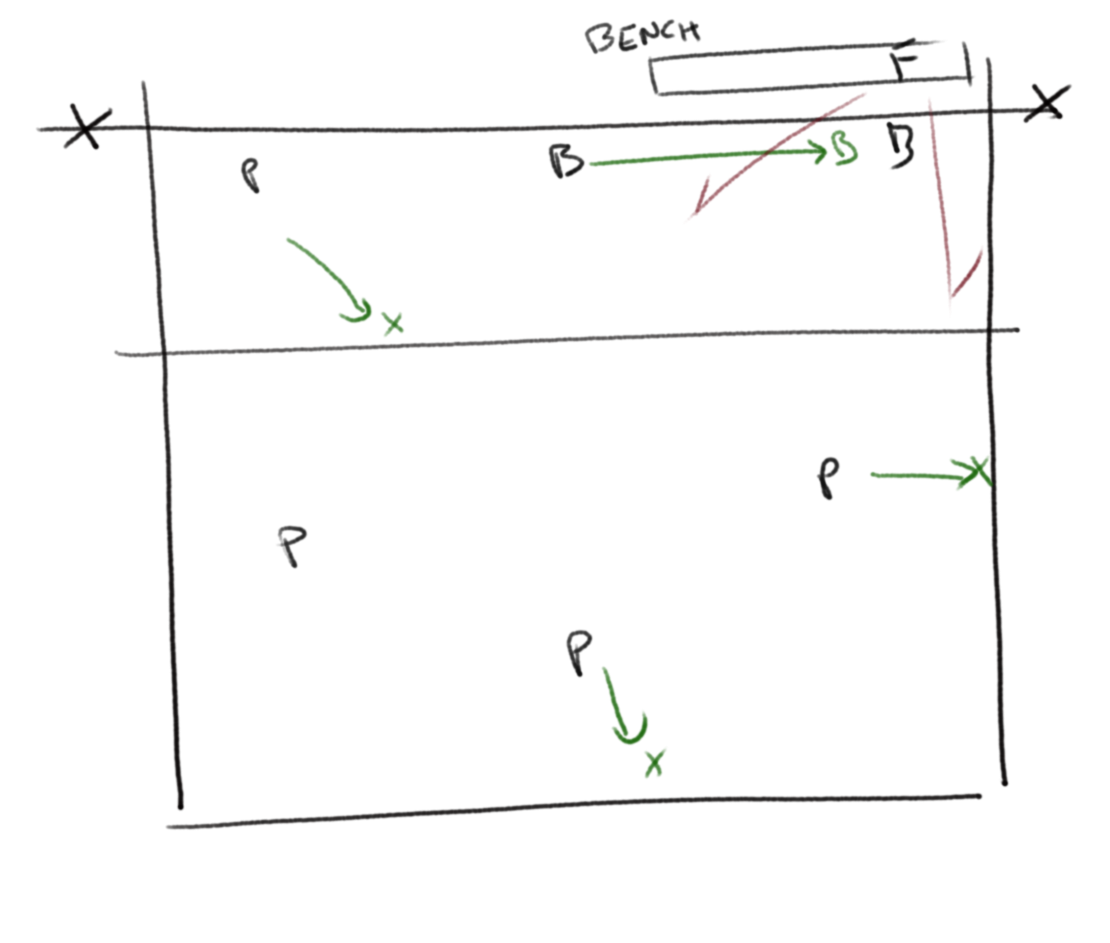 BENCH
F
X X
P B B B
X
P X
P
P
X